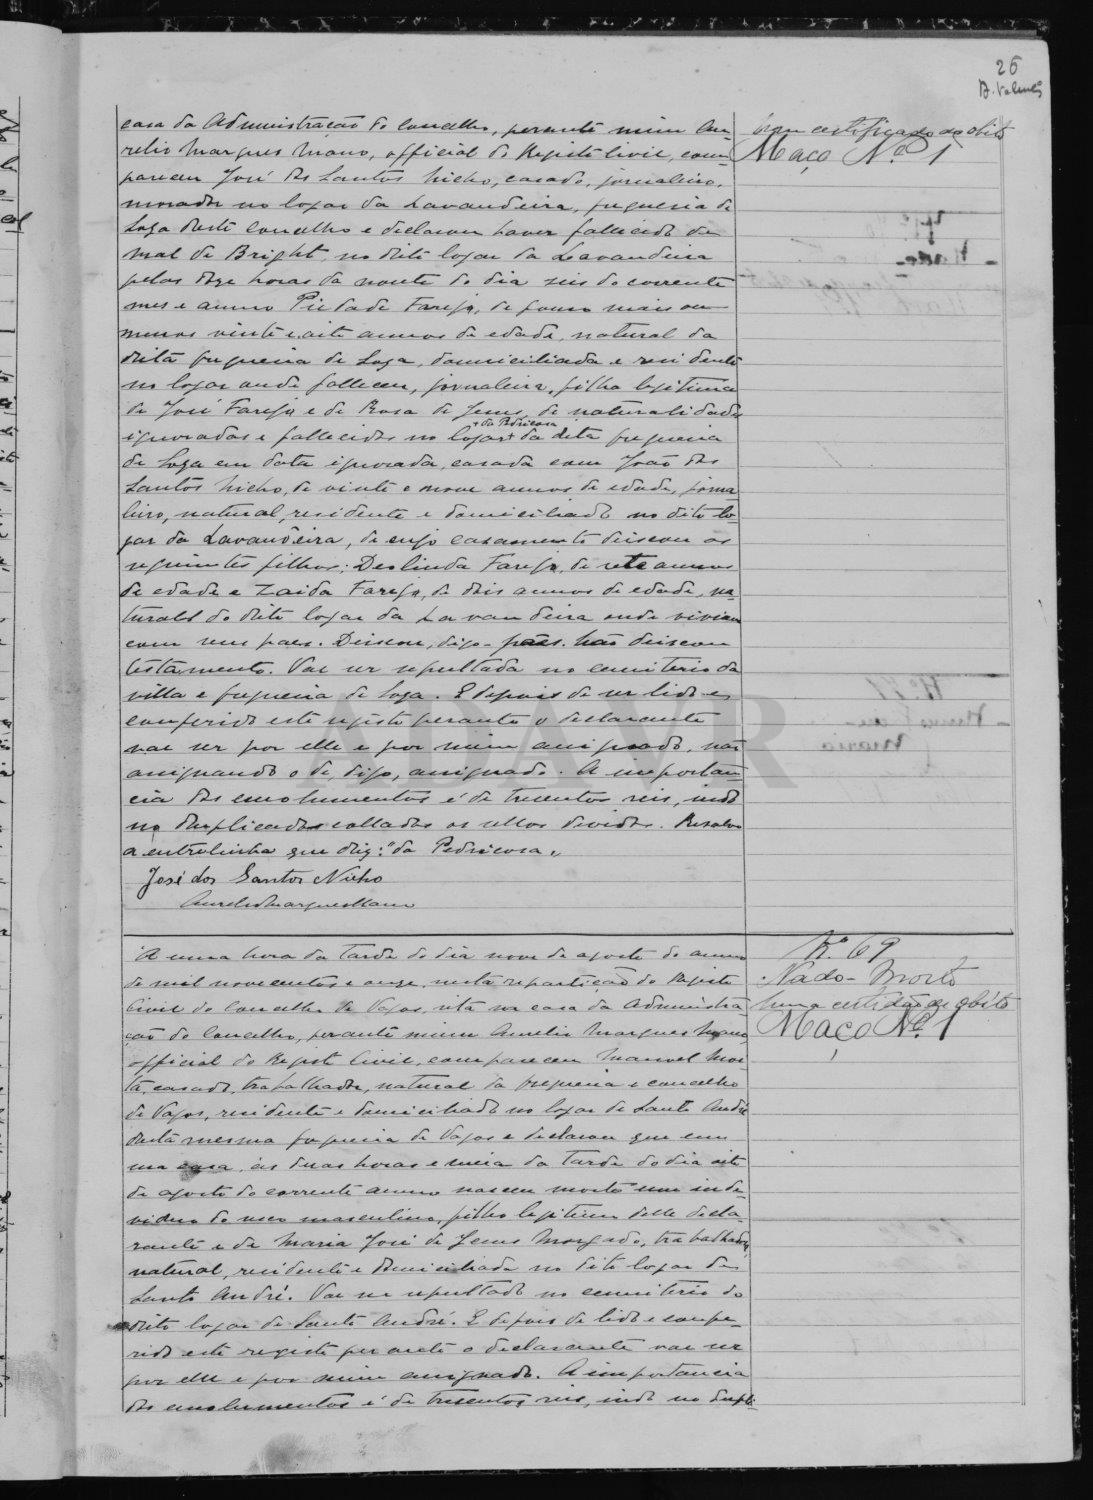 26
casa da Administração do Concelho, perante mim Au-
relio Marques Mano, official do Registo Civil, com-
pareceu José dos Santos Nicho, casado, jornaleiro,
morador no logar da Lavandeira, freguesia de
Soza deste concelho e declarou haver fallecido de
mal de Bright, no dito logar da Lavandeira
pelas doze horas da noute do dia seis do corrente
mes e anno Piedade Fareja, de pouco mais ou
menos vinte e oito annos de edade, natural da
dita freguesia de Soza, domiciliada e residente
no logar onde falleceu, jornaleira, filha legitima
de José Fareja e de Rosa de Jesus, de naturalidade
+ da Pedricosa
ignoradas e fallecidos no logar + da dita freguesia
de Soza em data ignorada, casada com João dos
Santos Nicho, de vinte e nove annos de edade, jorna-
leiro, natural, residente e domiciliado no dito lo-
gar da Lavandeira, de cujo casamento deixou os
seguintes filhos: Deolinda Fareja, de sete annos
de edade e Zaida Fareja, de dois annos de edade, na-
turaes do dito logar da Lavandeira onde viviam
com seus paes. Deixou, digo - paes. Não deixou
testamento. Vae ser sepultada no cemiterio da
villa e freguesia de Soza. E depois de ser lido e
conferido este registo perante o declarante
vae ser por elle e por mim assignado, não
assignando o de, digo, assignado. A importan-
cia dos emolumentos é de tresentos reis, indo
no duplicado collados os sellos devidos. Resalvo
a entrelinha que diz: "da Pedricosa".
José dos Santos Nicho
Aurelio Marques Mano
um certificado de obito
Maço Nº 1
A uma hora da tarde do dia nove de agosto do anno
de mil novecentos e onze, nesta repartição do Registo
Civil do Concelho de Vagos, sita na casa da Administra-
ção do Concelho, perante mim Aurelio Marques Mano,
official do Registo Civil, compareceu Manoel Mot-
ta, casado, trabalhador, natural da freguesia e concelho
de Vagos, residente e domiciliado no logar de Santo André
desta mesma freguesia de Vagos e declarou que em
sua casa, ás duas horas e meia da tarde do dia oito
de agosto do corrente anno nasceu morto um inde-
viduo do sexo masculino, filho legitimo delle decla-
rante e de Maria José de Jesus Morgado, trabalhadora,
natural, residente e domiciliada no dito logar de
Santo André. Vae ser sepultado no cemiterio do
dito logar de Santo André. E depois de lido e confe-
rido este registo perante o declarante vae ser
por elle e por mim assignado. A importancia
dos emolumentos é de tresentos reis, indo no dupli-
Nº 69
Nado-Morto
Uma certidão de obito
Maço Nº 1
ADAVR